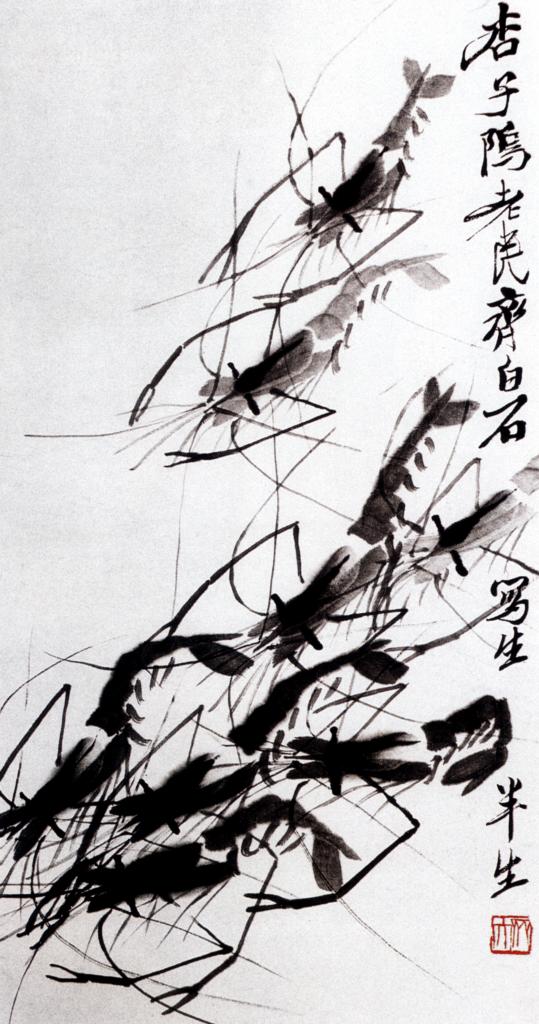 杏子隝老民齊白石
写生
半生